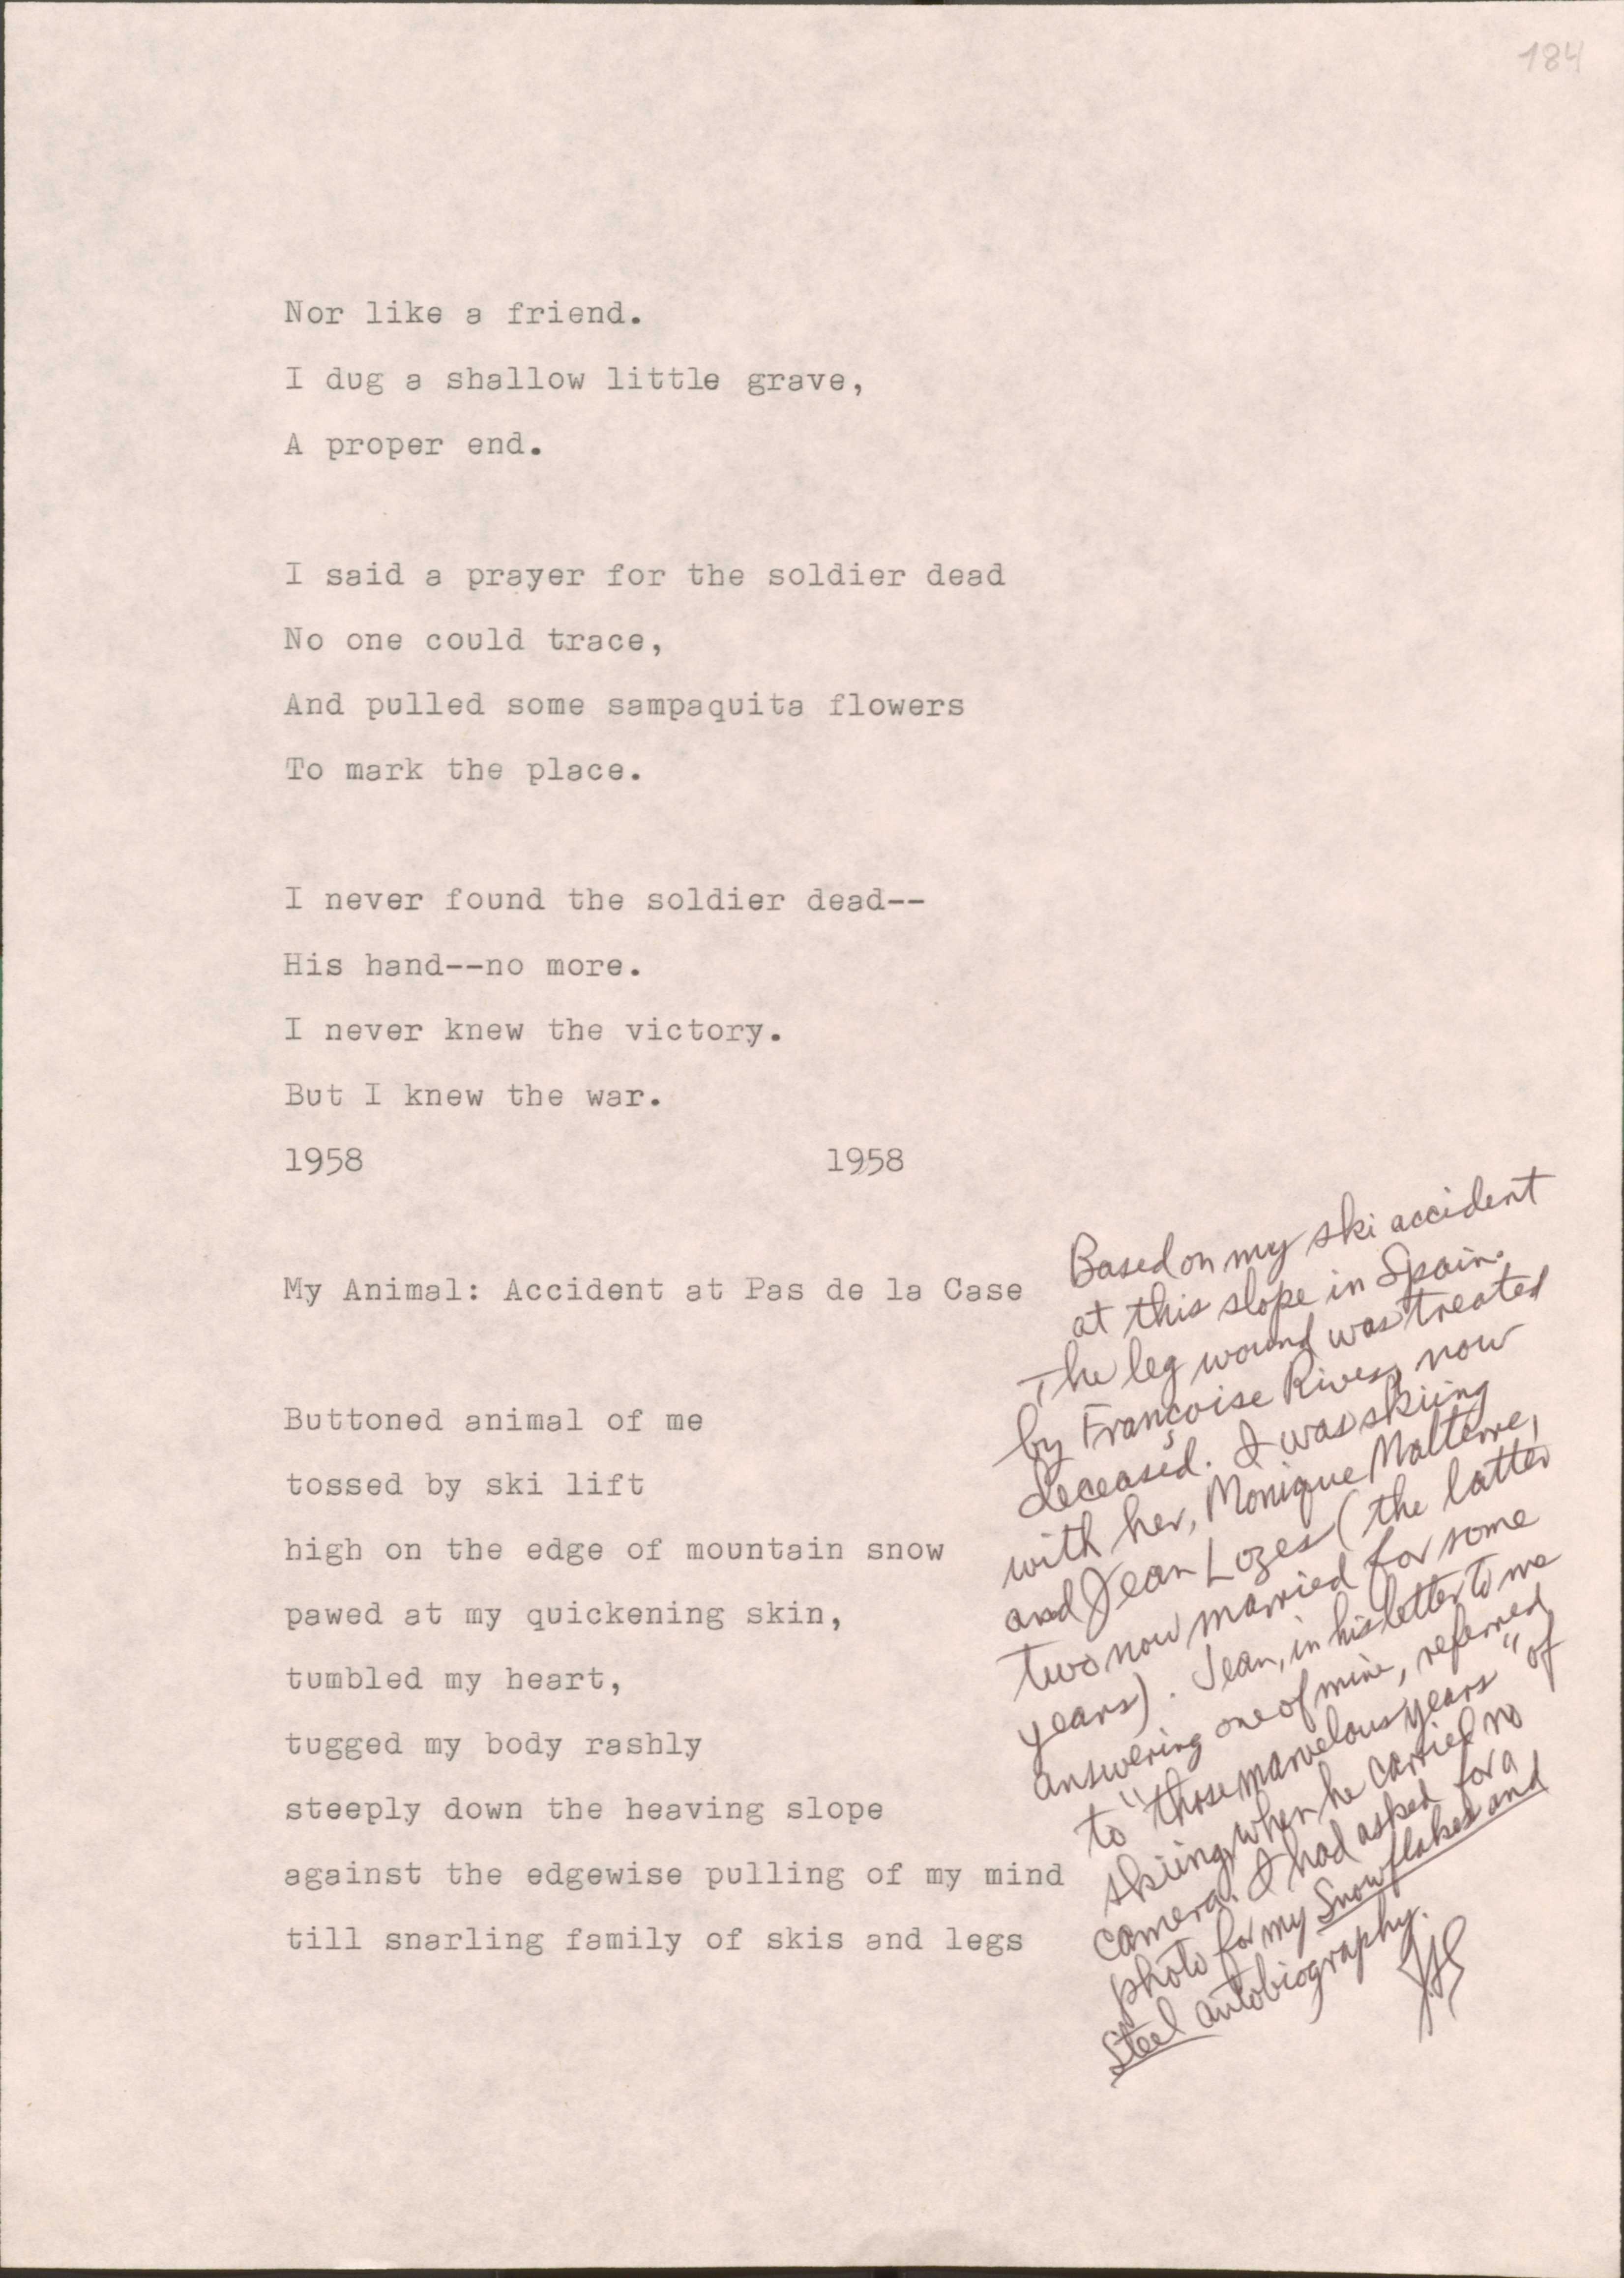 184
Nor like a friend.
I dug a shallow little grave,
A proper end.
I said a prayer for the soldier dead
No one could trace,
And pulled some sampaquita flowers
To mark the place.
I never found the soldier dead--
His hand--no more.
I never knew the victory.
But I knew the war.
1958 1958
My Animal: Accident at Pas de la Case
Buttoned animal of me
tossed by ski lift
high on the edge of mountain snow
pawed at my quickening skin,
tumbled my heart,
tugged my body rashly
steeply down the heaving slope
against the edgewise pulling of my mind
till snarling family of skis and legs
Based on my ski accident
at this slope in Spain.
The leg wound was treated
by Françoise Rives, now
deceased. I was skiing
with her, Monique Malterre,
and Jean Lozes (the latter
two now married for some
years). Jean, in his letter to me
answering one of mine, referred
to "those marvelous years" of
skiing when he carried no
camera. I had asked for a
photo for my Snowflakes and
Steel autobiography.